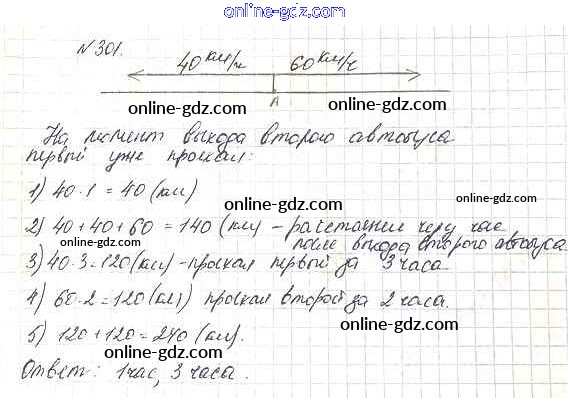 online-gdz.com
№301.
40 км/ч 60 км/ч
A
online-gdz.com online-gdz.com
На момент выхода второго автобуса
первый уже проехал:
online-gdz.com
1) 40·1 = 40 (км)
online-gdz.com
2) 40+40+60 = 140 (км) – расстояние через час
online-gdz.com
после выхода второго автобуса
3) 40·3=120(км) – проехал первый за 3 часа
online-gdz.com
4) 60·2=120(км) проехал второй за 2 часа.
online-gdz.com
5) 120+120=240 (км).
online-gdz.com
Ответ: 1 час, 3 часа.
online-gdz.com